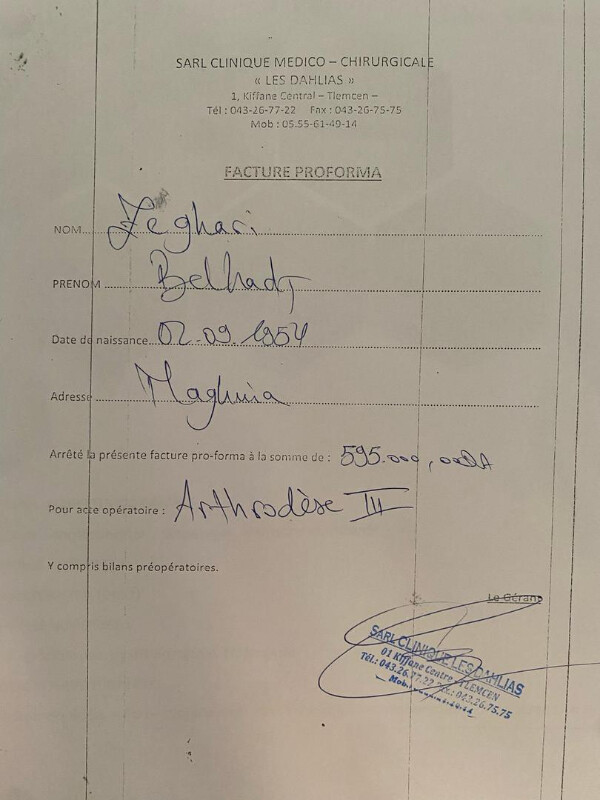 SARL CLINIQUE MEDICO – CHIRURGICALE
« LES DAHLIAS »
1, Kiffane Central – Tlemcen –
Tél : 043-26-77-22 Fax : 043-26-75-75
Mob : 05.55-61-49-14
FACTURE PROFORMA
NOM Zeghari
PRENOM Belhadj
Date de naissance 02.09.1954
Adresse Maghnia
Arrêté la présente facture pro-forma à la somme de : 595.000,00DA
Pour acte opératoire : Arthrodèse III
Y compris bilans préopératoires.
Le Gérant
SARL CLINIQUE LES DAHLIAS
01 Kiffane Centre - TLEMCEN
Tél.: 043.26.77.22 043.26.75.75
Mob